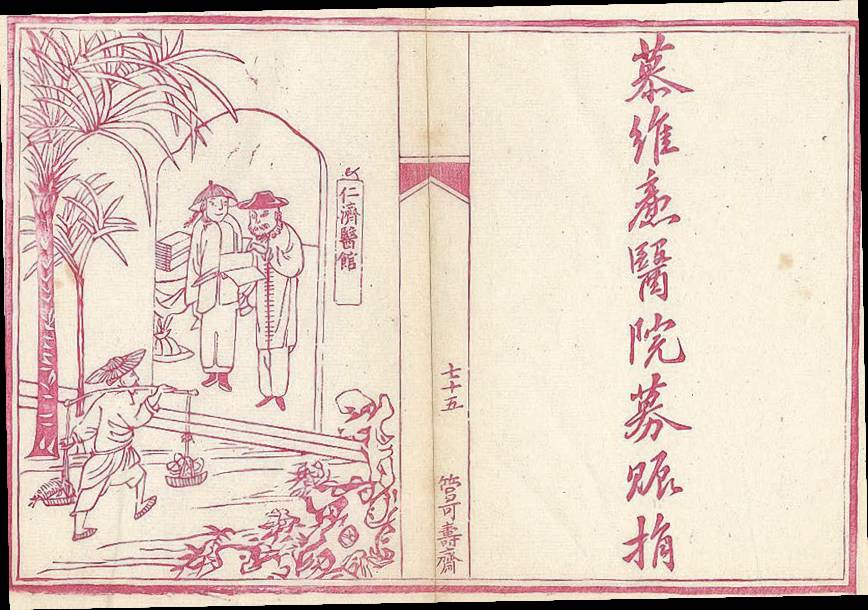 慕維亷醫院募賑捐
七十五
管可壽齋
仁濟醫館